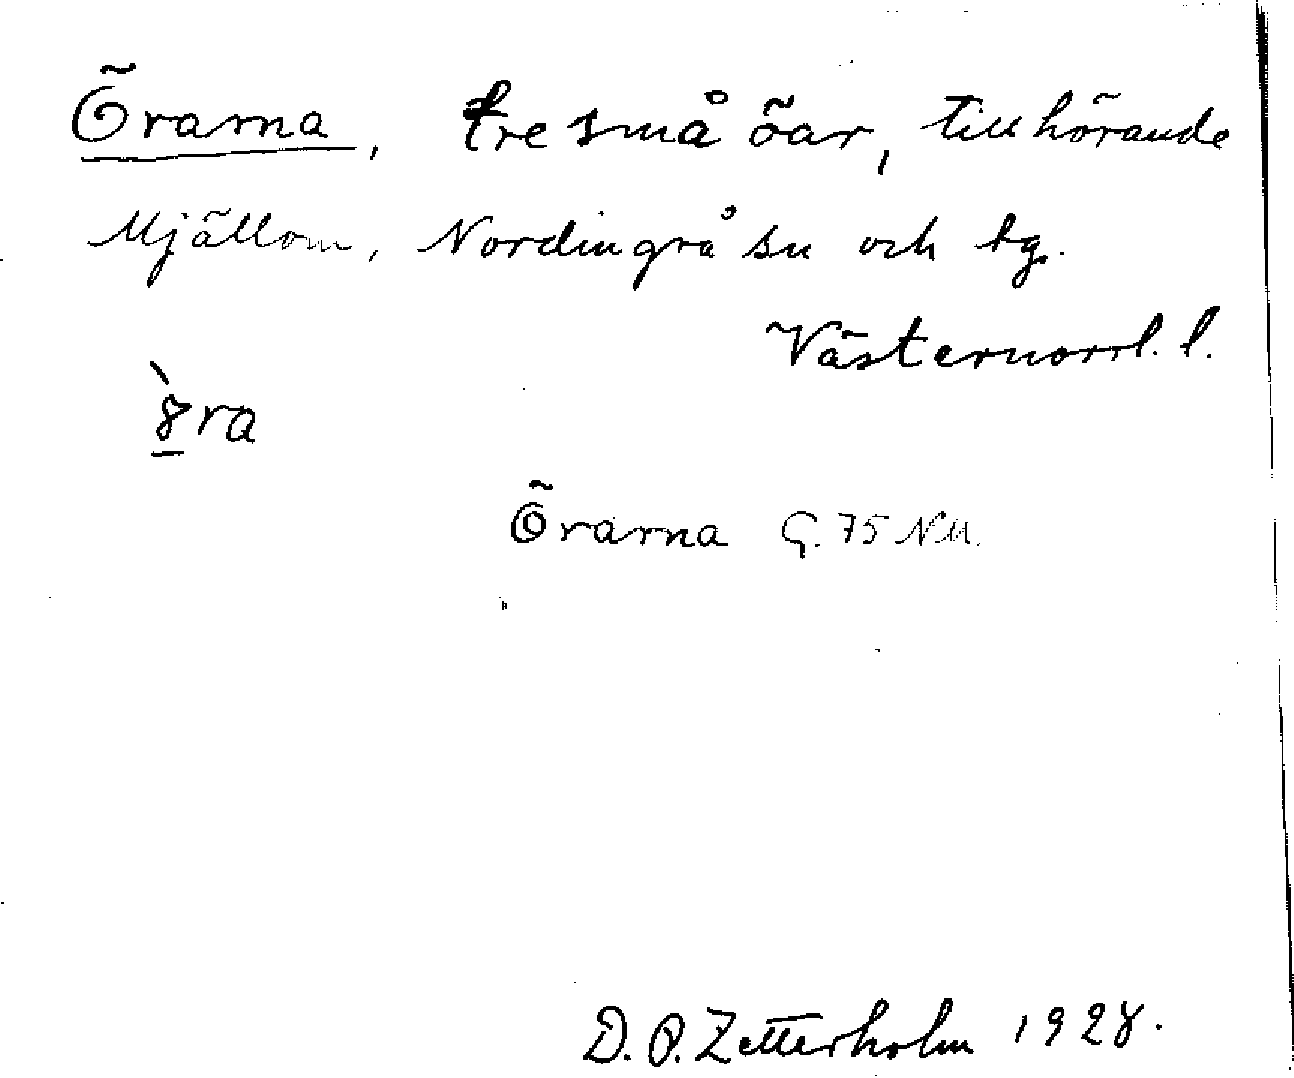 Örarna, tre små öar, tillhörande
Mjällom, Nordingrå sn och tg.
Västernorrl. l.
Örarna G. 75 NU.
D. O. Zetterholm 1928.